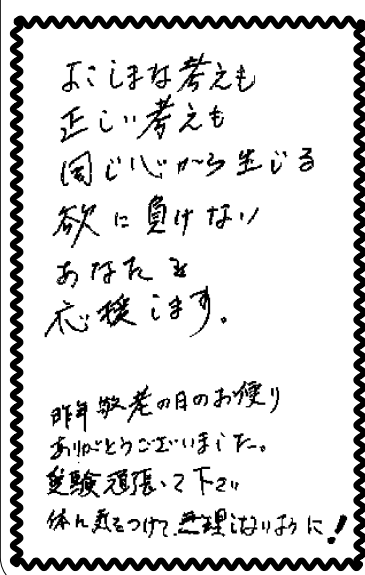 よこしまな考えも
正しい考えも
同じ心から生じる
欲に負けない
あなたを
応援します。
昨年敬老の日のお便り
ありがとうございました。
受験頑張って下さい
体に気をつけて無理しないように!